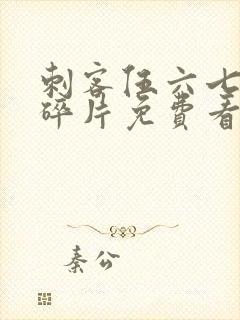 刺客伍六七
碎片免费看
秦公